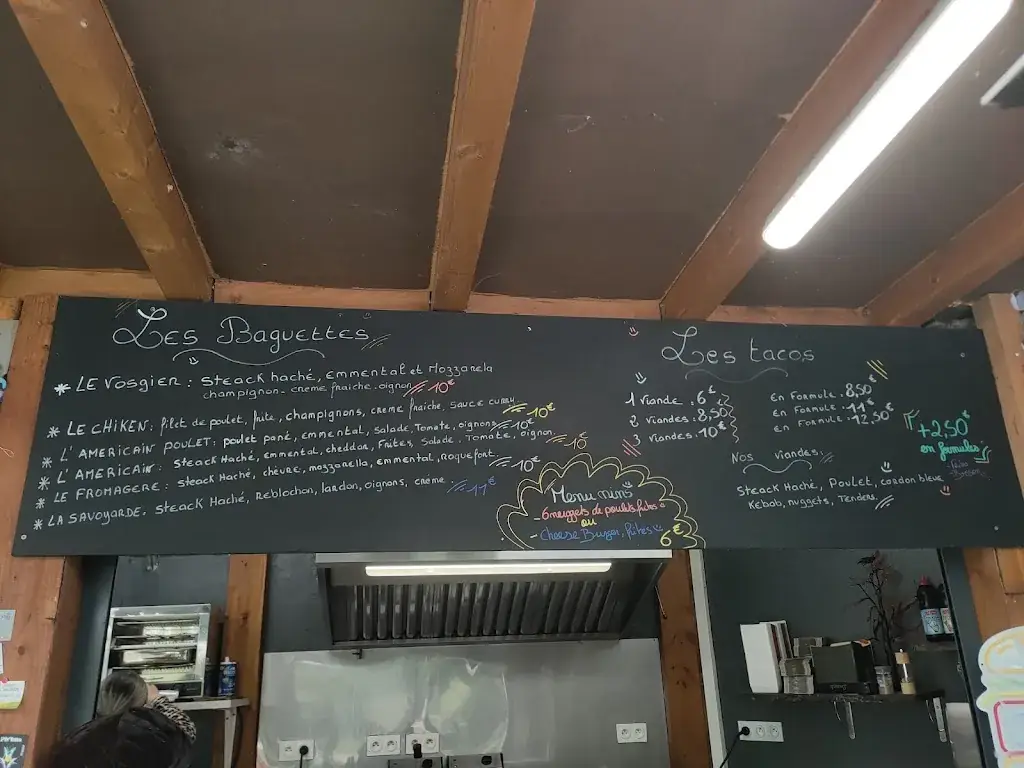 Les Baguettes
* LE Vosgier : Steack haché, emmental et Mozzarela
champignon - creme fraiche - oignon 10€
* LE CHIKEN : filet de poulet, frite, champignons, creme fraiche, sauce curry 10€
* L'AMERICAIN POULET : poulet pané, emmental, salade, Tomate, oignons 10€
* L'AMERICAIN : Steack Haché, emmental, cheddar, Frites, Salade, Tomate, oignon 10€
* LE FROMAGERE : Steack Haché, chèvre, mozzarella, emmental, roquefort 10€
* LA SAVOYARDE. Steack Haché, Reblochon, lardon, oignons, creme 11€
Menu minis
- 6 nuggets de poulet, frites
ou
- Cheese Burger, frites 6€
Les tacos
1 Viande : 6€ en Formule : 8,50€
2 Viandes : 8,50 en Formule : 11€
3 Viandes : 10€ en Formule : 12,50€
+2,50€
en formules
Nos viandes :
Steack Haché, Poulet, cordon bleu
Kebab, nuggets, Tenders